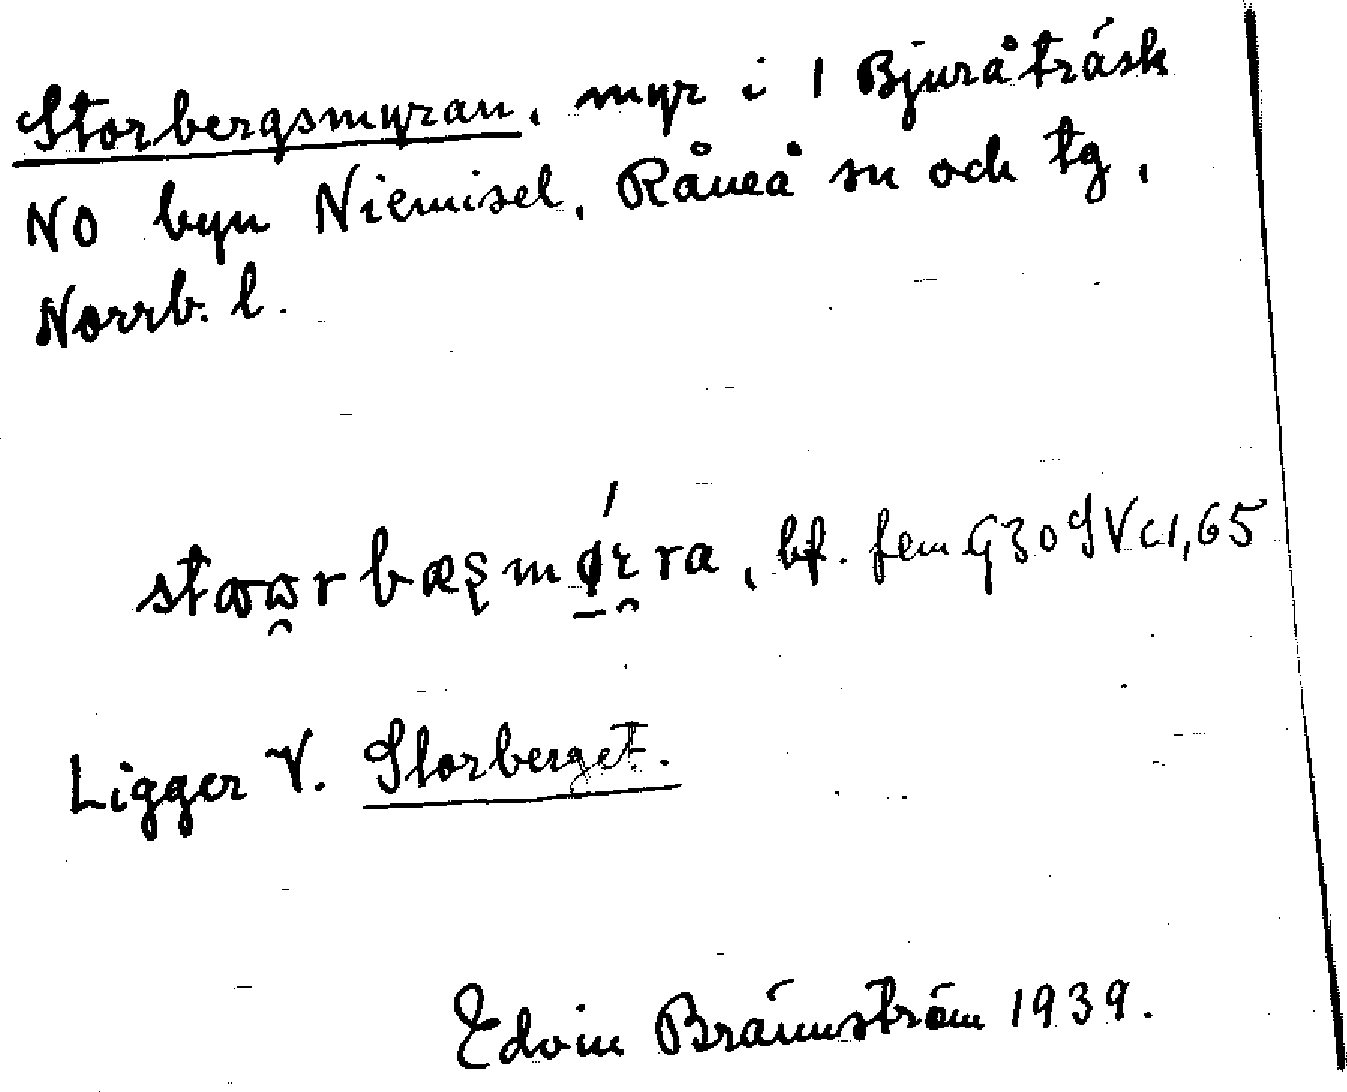 Storbergsmyran, myr i 1 Bjuråträsk
NO byn Niemisel, Råneå sn och tg,
Norrb. l.
bf. fem
Ligger V. Storberget.
Edvin Brännström 1939.